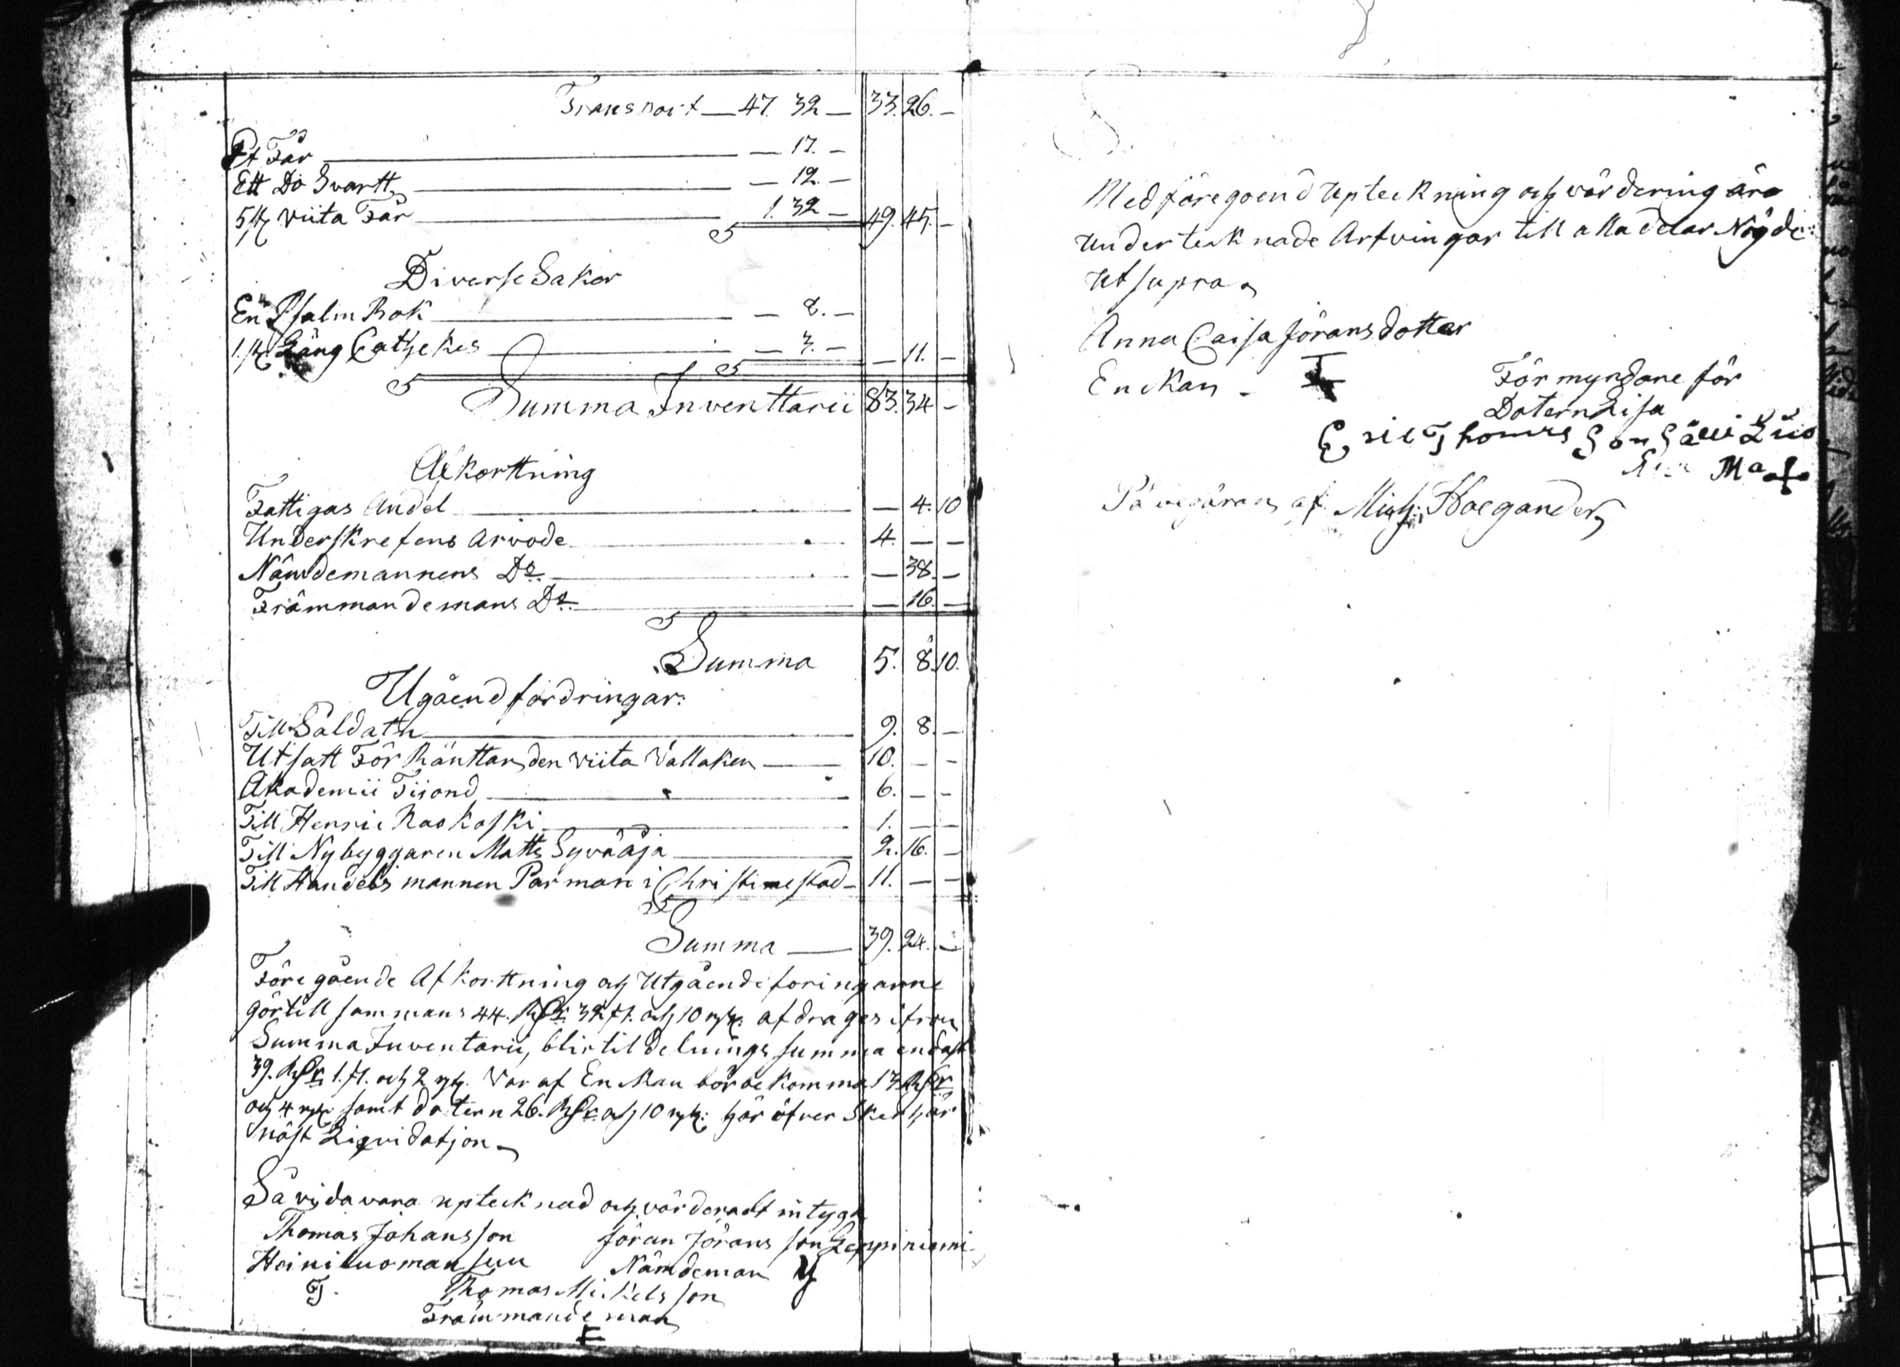 Transport — 47. 32 — 33. 26. —
Et Får — 17. —
Ett Do Svartt — 12. —
5 st viita Får — 1. 32 — 49. 45. —
Diverse Saker
En Psalm Bok — 8. —
1. st Lång Cathekes — 3. — — 11. —
Summa Inventtarii 83. 34 —
Afkorttning
Fattigas Andel — 4. 10
Underskrefens arvode 4. — —
Nämdemannens Do — 38. —
Främmandemans Do — 16. —
Summa 5. 8. 10.
Ugåend fordringar:
Till Saldatn 9. 8. —
Utsatt För Ränttan den viita Vallaken 10. — —
Akademii Tijond 6. — —
Till Henric Kaskoski 1. — —
Till Nybyggaren Matts Syväåja 2. 16. —
Till Handels mannen Parman i Christinestad 11. — —
Summa — 39. 24. —
Föregående Afkorttning och Utgående foringarne
gör till sammans 44. RDr 32 s. och 10 rst. afdrages ifrån
Summa Inventarii, blir til delnings summa endast
39. RDr 1. s. och 2 rst. Var af Enkan bör bekomma 13 RDr
och 4 rst samt dotern 26. RDr och 10 rst: här öfver Sker här
näst Liqvidatjon
Så vida vara upteknad och värderadt intyga
Thomas Johansson Jöran Jöransson Leppiniemi
Heiniluoman suu Nämdeman
Thomas Mickelsson
Främmande man
Med föregoend upteckning och värdering äro
undertecknade Arfvingar till alla delar Nögde:
Ut supra
Anna Caisa Jörans dotter
Enckan
Förmyndare för
Dotern Lisa
Eric Thomas Son
På begäran af Mich: Hoegander